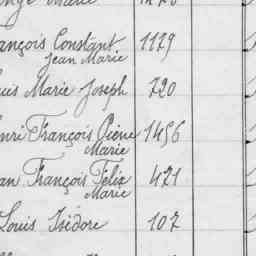 ançois Constant 1179
Jean Marie
uis Marie Joseph 720
enri François Pierre 1456
Marie
an François Félix 471
Marie
Louis Isidore 107